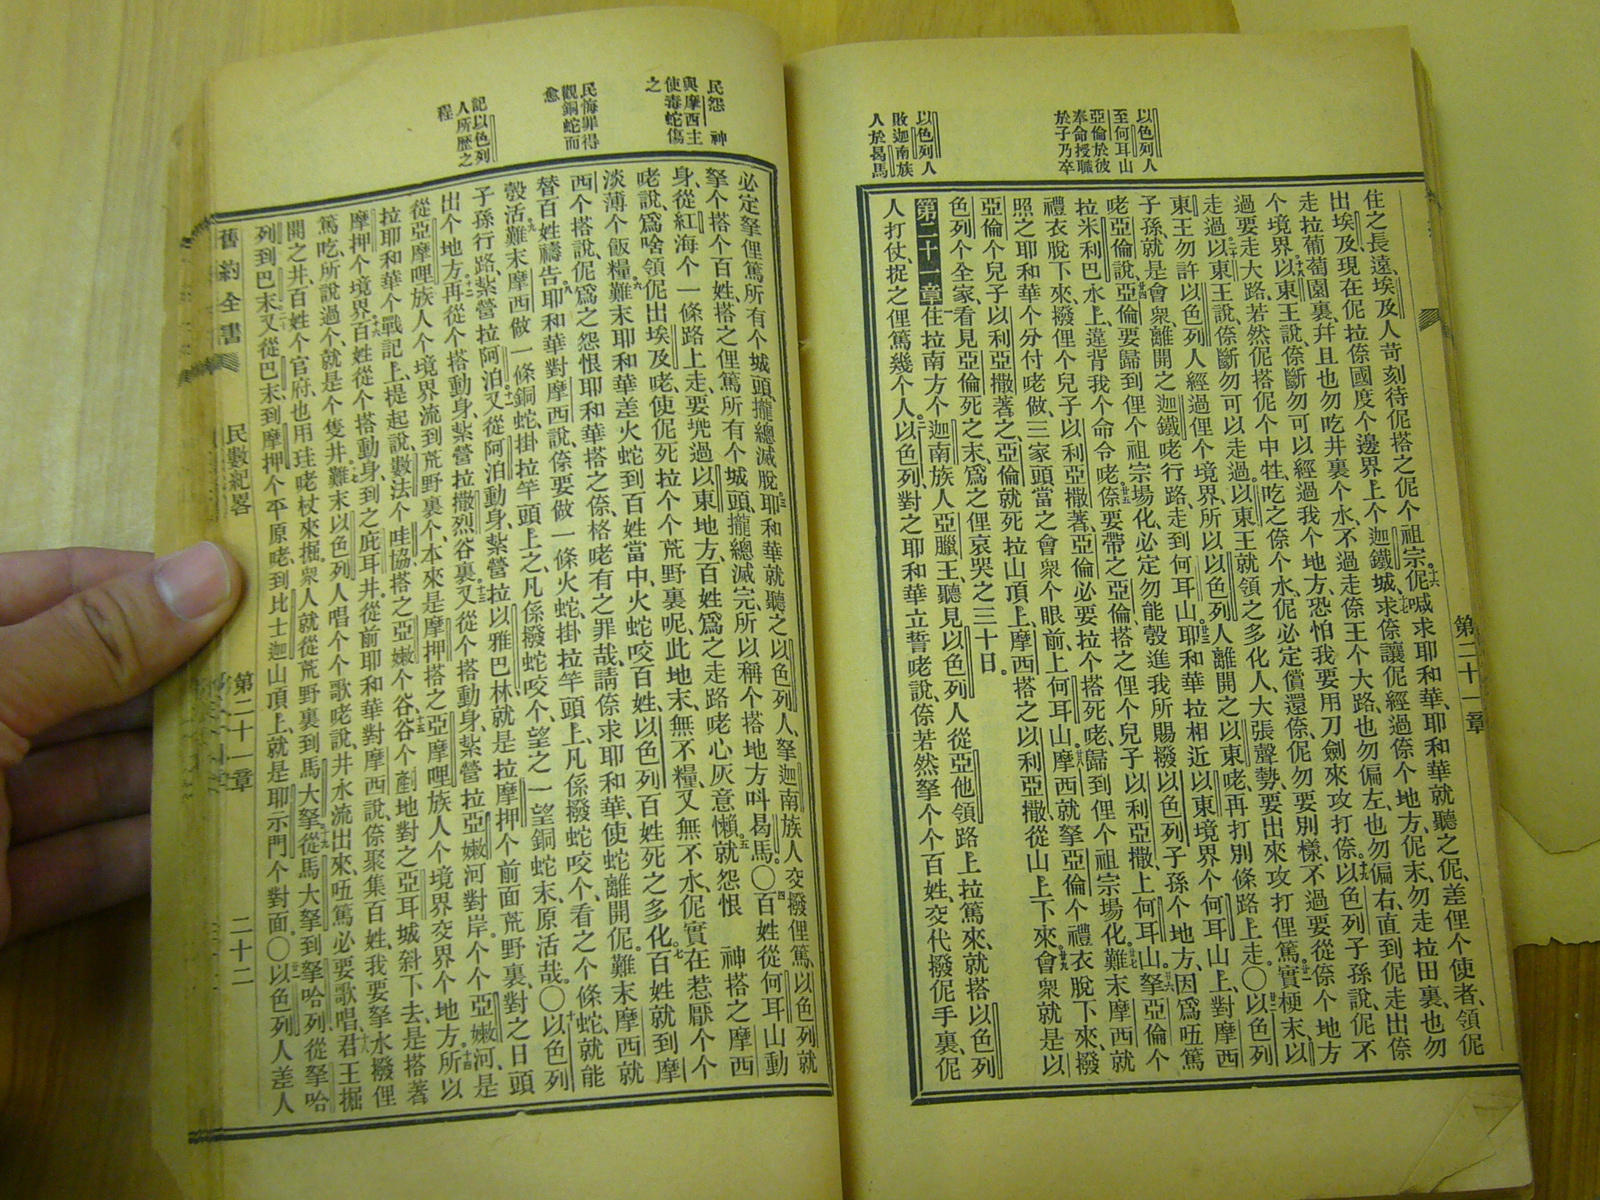 以色列人
至何耳山
亞倫於彼
奉命授職
於子乃卒
以色列人
敗迦南族
人於曷馬
第二十一章
住之長遠、埃及人苛刻待伲搭之伲个祖宗伲喊求耶和華、耶和華就聽之伲、差俚个使者、領伲
出埃及現在伲拉倷國度个邊界上个迦鐵城求倷讓伲經過倷个地方、伲末、勿走拉田裏、也勿
走拉葡萄園裏、幷且也勿吃井裏个水、不過走倷王个大路、也勿偏左、也勿偏右、直到伲走出倷
个境界、以東王說、倷斷勿可以經過我个地方、恐怕我要用刀劍來攻打倷、以色列子孫說、伲不
過要走大路、若然伲搭伲个中牲、吃之倷个水、伲必定償還倷、伲勿要別樣、不過要從倷个地方
走過、以東王說、倷斷勿可以走過、以東王就領之多化人、大張聲勢、要出來攻打俚篤、實梗末、以
東王勿許以色列人經過俚个境界、所以以色列人離開之以東咾、再打別條路上走、〇以色列
子孫、就是會衆、離開之迦鐵咾行路、走到何耳山、耶和華拉相近以東境界个何耳山上、對摩西
咾亞倫說、亞倫要歸到俚个祖宗塲化、必定勿能彀進我所賜撥以色列子孫个地方、因爲唔篤
拉米利巴水上、違背我个命令咾、倷要帶之亞倫、搭之俚个兒子以利亞撒、上何耳山、拏亞倫个
禮衣脫下來、撥俚个兒子以利亞撒著、亞倫必要拉个搭死咾、歸到俚个祖宗塲化、難末摩西就
照之耶和華个分付咾做、三家頭當之會衆个眼前、上何耳山、摩西就拏亞倫个禮衣脫下來、撥
亞倫个兒子以利亞撒著之、亞倫就死拉山頂上、摩西搭之以利亞撒、從山上下來、會衆就是以
色列个全家、看見亞倫死之末、爲之俚哀哭之三十日、
第二十一章 住拉南方个迦南族人亞臘王、聽見以色列人從亞他領路上拉篤來、就搭以色列
人打仗、捉之俚篤幾个人、以色列對之耶和華立誓咾說、倷若然拏个个百姓、交代撥伲手裏、伲
民怨 神
與摩西主
使毒蛇傷
之
民悔罪得
觀銅蛇而
愈
記以色列
人所歷之
程
必定拏俚篤所有个城頭、攏總滅脫、耶和華就聽之以色列人、拏迦南族人交撥俚篤、以色列就
拏个搭个百姓、搭之俚篤所有个城頭、攏總滅完、所以稱个搭地方呌曷馬、〇百姓從何耳山動
身、從紅海个一條路上走、要兜過以東地方、百姓爲之走路咾、心灰意懶、就怨恨 神搭之摩西
咾說、爲啥領伲出埃及咾、使伲死拉个个荒野裏呢、此地末、無不糧、又無不水、伲實在惹厭个个
淡薄个飯糧、難末耶和華差火蛇到百姓當中、火蛇咬百姓、以色列百姓死之多化、百姓就到摩
西个搭說、伲爲之怨恨耶和華搭之倷、格咾有之罪哉、請倷求耶和華、使蛇離開伲、難末摩西就
替百姓禱告、耶和華對摩西說、倷要做一條火蛇、掛拉竿頭上、凡係撥蛇咬个、看之个條蛇、就能
彀活、難末摩西做一條銅蛇、掛拉竿頭上之、凡係撥蛇咬个、望之一望銅蛇末、原活哉、〇以色列
子孫行路、紮營拉阿泊、又從阿泊動身、紮營拉以雅巴林就是拉摩押个前面荒野裏、對之日頭
出个地方、再從个搭動身、紮營拉撒烈谷裏、又從个搭動身、紮營拉亞嫩河對岸、个个亞嫩河、是
從亞摩哩族人个境界流到荒野裏个、本來是摩押搭之亞摩哩族人个境界交界个地方、所以
拉耶和華个戰記上、提起說、數法个哇協、搭之亞嫩个谷、谷个㔉地對之亞耳城斜下去、是搭著
摩押个境界、百姓從个搭動身、到之庇耳井、從前耶和華對摩西說、倷聚集百姓、我要拏水撥俚
篤吃、所說過个、就是个隻井、難末以色列人唱个个歌咾說、井水流出來、唔篤必要歌唱、君王掘
開之井、百姓个官府、也用珪咾杖來掘、衆人就從荒野裏到馬大拏、從馬大拏到拏哈列、從拏哈
列到巴末、又從巴末、到摩押个平原咾、到比士迦山頂上、就是耶示門个對面、〇以色列人差人
舊約全書 民數紀畧 第二十一章 二十二